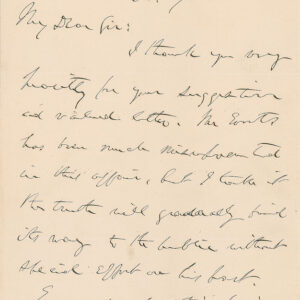 My Dear Sir:
I thank you very
heartily for your suggestion
and valued letter. Mr Evarts
has been much misrepresented
in this affair, but I think it
the truth will gradually find
its way to the public without
special effort on his part.